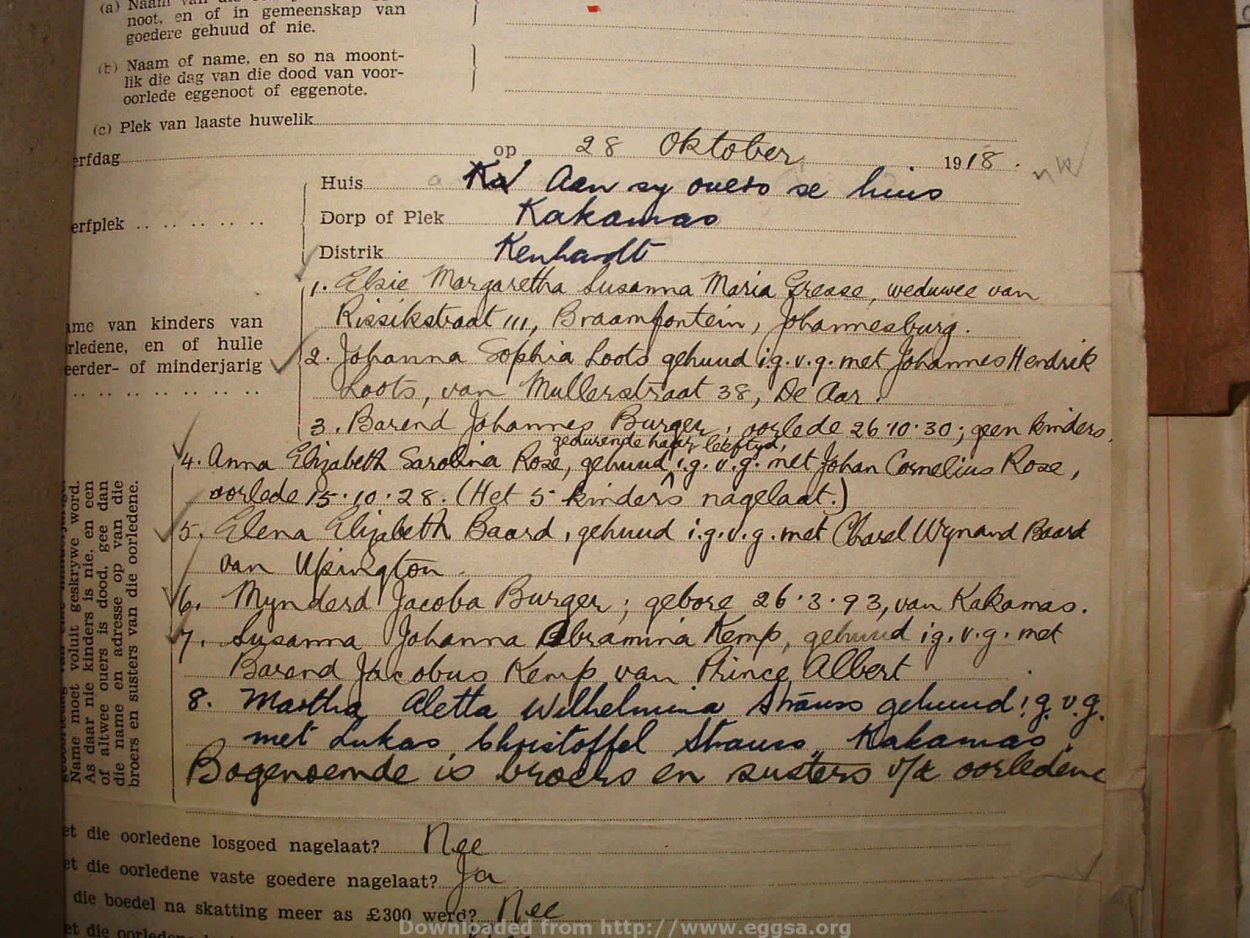 (a) Naam van
noot, en of in gemeenskap van
goedere gehuud of nie.
(b) Naam of name, en so na moont-
lik die dag van die dood van voor-
oorlede eggenoot of eggenote.
(c) Plek van laaste huwelik
erfdag op 28 Oktober 1918.
Huis Aan sy ouers se huis
erfplek Dorp of Plek Kakamas
Distrik Kenhardt
1. Elsie Margaretha Susanna Maria Grease, weduwee van
Rissikstraat 111, Braamfontein, Johannesburg.
ame van kinders van
rledene, en of hulle
eerder- of minderjarig
2. Johanna Sophia Loots gehuud i.g.v.g. met Johannes Hendrik
Loots, van Mullerstraat 38, De Aar.
3. Barend Johannes Burger, oorlede 26.10.30; geen kinders.
gedurende haar leeftyd,
4. Anna Elizabeth Sarolina Rose, gehuud i.g.v.g. met Johan Cornelius Rose,
oorlede 15.10.28. (Het 5 kinders nagelaat.)
5. Elena Elizabeth Baard, gehuud i.g.v.g. met Charel Wynand Baard
van Upington.
6. Mynderd Jacoba Burger; gebore 26.3.93, van Kakamas.
7. Susanna Johanna Abramina Kemp, gehuud i.g.v.g. met
Barend Jacobus Kemp van Prince Albert
8. Martha Aletta Wilhelmina Strauss gehuud i.g.v.g.
met Lukas Christoffel Strauss, Kakamas.
Bogenoemde is broers en susters v/d oorledene
Name moet voluit geskrywe word.
As daar nie kinders is nie, en een
of altwee ouers is dood, gee dan
die name en adresse op van die
broers en susters van die oorledene.
et die oorledene losgoed nagelaat? Nee
et die oorledene vaste goedere nagelaat? Ja
die boedel na skatting meer as £300 werd? Nee
et die
Downloaded from http://www.eggsa.org